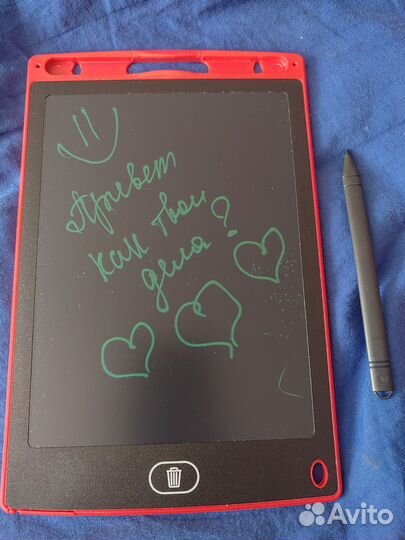 Привет
как твои
дела?
Avito